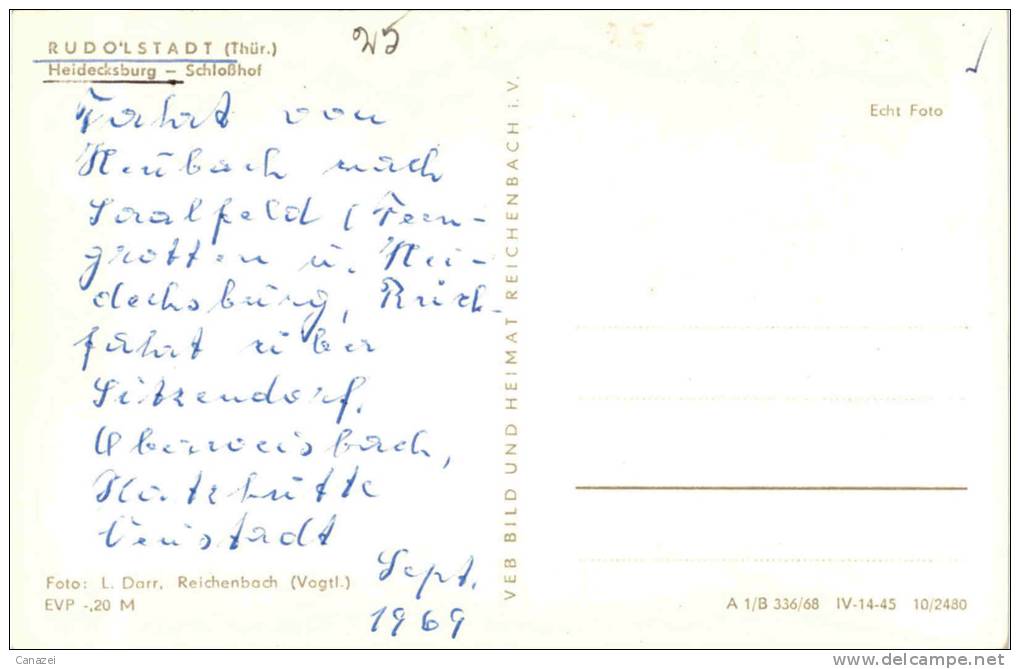 RUDOLSTADT (Thür.)
Heidecksburg – Schloßhof
25
Fahrt von
Neubach nach
Saalfeld (Feen-
grotten u. Hei-
decksburg, Rück-
fahrt über
Sitzendorf,
Oberweisbach,
Katzhütte
Neustadt
Sept.
1969
Foto: L. Darr, Reichenbach (Vogtl.)
EVP -,20 M
VEB BILD UND HEIMAT REICHENBACH i. V.
Echt Foto
A 1/B 336/68 IV-14-45 10/2480
Canazei
www.delcampe.net